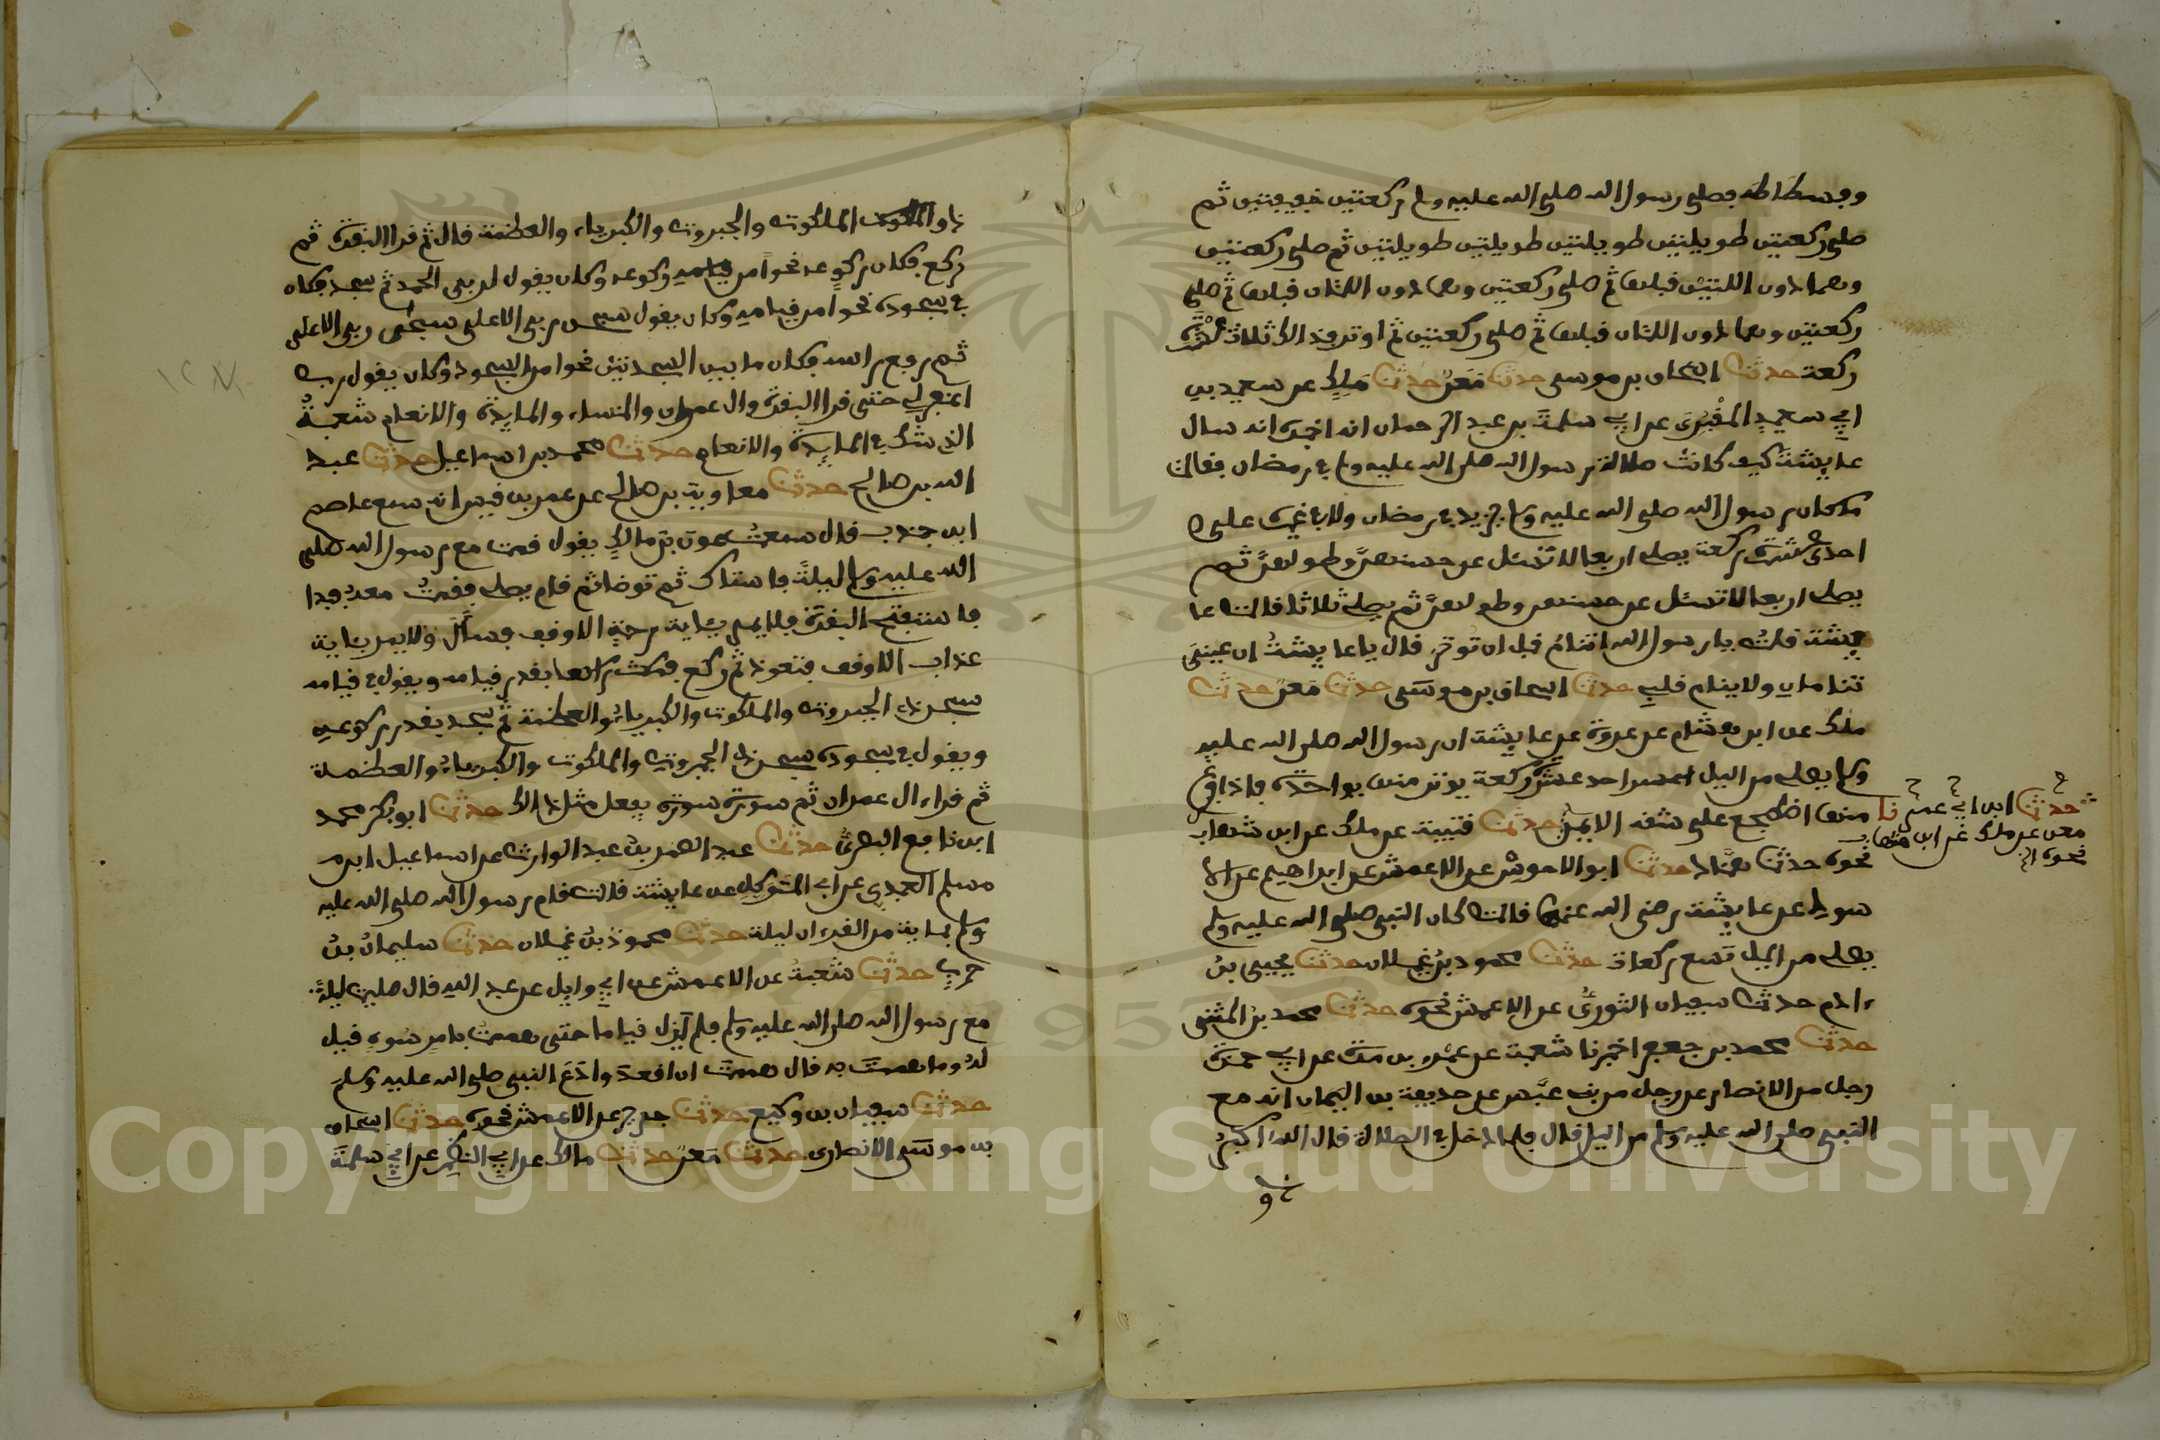 وفسطاطه فصلى رسول الله صلى الله عليه وسلم ركعتين خفيفتين ثم
صلى ركعتين طويلتين طويلتين طويلتين طويلتين ثم صلى ركعتين
وهما دون اللتين قبلهما ثم صلى ركعتين وهما دون اللتان قبلهما ثم صلى
ركعتين وهما دون اللتان قبلهما ثم صلى ركعتين ثم اوتر فذالك ثلاث عشرة
ركعة حدثنا اسحاق بن موسى حدثنا معن حدثنا ملك عن سعيد بن
ابي سعيد المقبري عن ابي سلمة بن عبد الرحمان انه اخبره انه سال
عايشة كيف كانت صلاة رسول الله صلى الله عليه وسلم في رمضان فقالت
ماكان رسول الله صلى الله عليه وسلم يزيد في رمضان ولا في غيره على
احدى عشرة ركعة يصلي اربعا لا تسئل عن حسنهن وطولهن ثم
يصلي اربعا لا تسئل عن حسنهن وطولهن ثم يصلي ثلاثا قالت عا
يشة قلت يا رسول الله اتنام قبل ان توتر قال يا عايشة ان عيني
تنامان ولا ينام قلبي حدثنا اسحاق بن موسى حدثنا معن حدثنا
ملك عن ابن هشام عن عروة عن عايشة ان رسول الله صلى الله عليه
وسلم يصلي من اليل احد عشر ركعة يوتر منهن بواحدة فاذا فرغ
منها اضطجع على شقه الايمن حدثنا قتيبة عن ملك عن ابن شهاب
نحوه حدثنا هناد حدثنا ابو الاحوص عن الاعمش عن ابراهيم عن الا
سود عن عايشة رضي الله عنها قالت كان النبي صلى الله عليه وسلم
يصلي من اليل تسع ركعات حدثنا محمود بن غيلان حدثنا يحيى بن
ءادم حدثنا سفيان الثوري عن الاعمش نحوه حدثنا محمد بن المثنى
حدثنا محمد بن جعفر اخبرنا شعبة عن عمرو بن مرة عن ابي حمزة
رجل من الانصار عن رجل من بني عبس عن حذيفة بن اليمان انه مع
النبي صلى الله عليه وسلم من اليل قال فلما دخل في الصلاة قال الله اكبر
حدثنا ابن ابي عمر نا
معن عن ملك عن ابن شهاب
نحوه
ذو الملكوت والجبروت والكبرياء والعظمة قال ثم قرا البقرة ثم
ركع فكان ركوعه نحوا من قيامه وكان يقول لربي الحمد ثم سجد فكان
في سجوده نحوا من قيامه وكان يقول سبحن ربي الاعلى سبحن ربي الاعلى
ثم رفع راسه فكان ما بين السجدتين نحوا من السجود وكان يقول رب
اغفر لي حتى قرا البقرة وال عمران والنساء والمايدة والانعام شعبة
الذي شك في المايدة والانعام حدثنا محمد بن اسماعيل حدثنا عبد
الله بن صالح حدثنا معاوية بن صالح عن عمر بن قيس انه سمع عاصم
ابن حميد قال سمعت عوف بن مالك يقول قمت مع رسول الله صلى
الله عليه وسلم ليلة فاستاك ثم توضا ثم قام يصلي فقمت معه فبدا
فاستفتح البقرة فلا يمر بئاية رحمة الا وقف فسال ولا يمر بئاية
عذاب الا وقف فتعوذ ثم ركع فمكث راكعا بقدر قيامه ويقول في قيامه
سبحن ذي الجبروت والملكوت والكبرياء والعظمة ثم سجد بقدر ركوعه
ويقول في سجوده سبحن ذي الجبروت والملكوت والكبرياء والعظمة
ثم قراء ال عمران ثم سورة سورة يفعل مثل ذالك حدثنا ابو بكر محمد
ابن نافع البصري حدثنا عبد الصمد بن عبد الوارث عن اسماعيل ابن
مسلم العبدي عن ابي المتوكل عن عايشة قالت قام رسول الله صلى الله عليه
وسلم بئاية من القرءان ليلة حدثنا محمود بن غيلان حدثنا سليمان بن
حرب حدثنا شعبة عن الاعمش عن ابي وايل عن عبد الله قال صليت ليلة
مع رسول الله صلى الله عليه وسلم فلم يزل قياما حتى هممت بامر سوء قيل
له وما هممت به قال هممت ان اقعد وادع النبي صلى الله عليه وسلم
حدثنا سفيان بن وكيع حدثنا جرير عن الاعمش نحوه حدثنا اسحاق
بن موسى الانصاري حدثنا معن حدثنا مالك عن ابي النضر عن ابي سلمة
Copyright © King Saud University